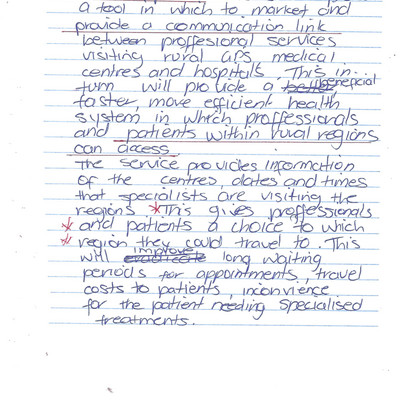 a tool in which to market and
provide a communication link
between proffesional services
visiting rural GPs medical
centres and hospitals. This in
turn will provide a better beneficial
faster, more efficient health
system in which proffessionals
and patients within rural regions
can access.
The service provides information
of the centres, dates and times
that specialists are visiting the
regions. *This gives proffessionals
* and patients a choice to which
* region they could travel to. This
will improve long waiting
periods for appointments, travel
costs to patients, inconvience
for the patient needing specialised
treatments.